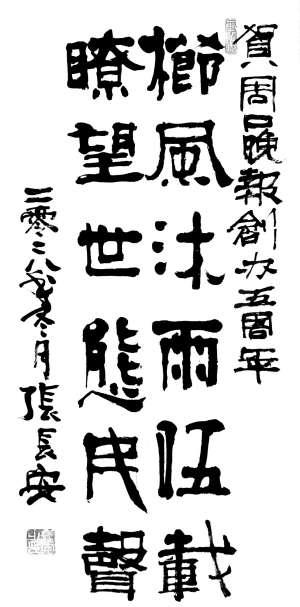 賀周口晚報創办五周年
櫛風沐雨伍載
瞭望世態民聲
二零々八年冬月張長安